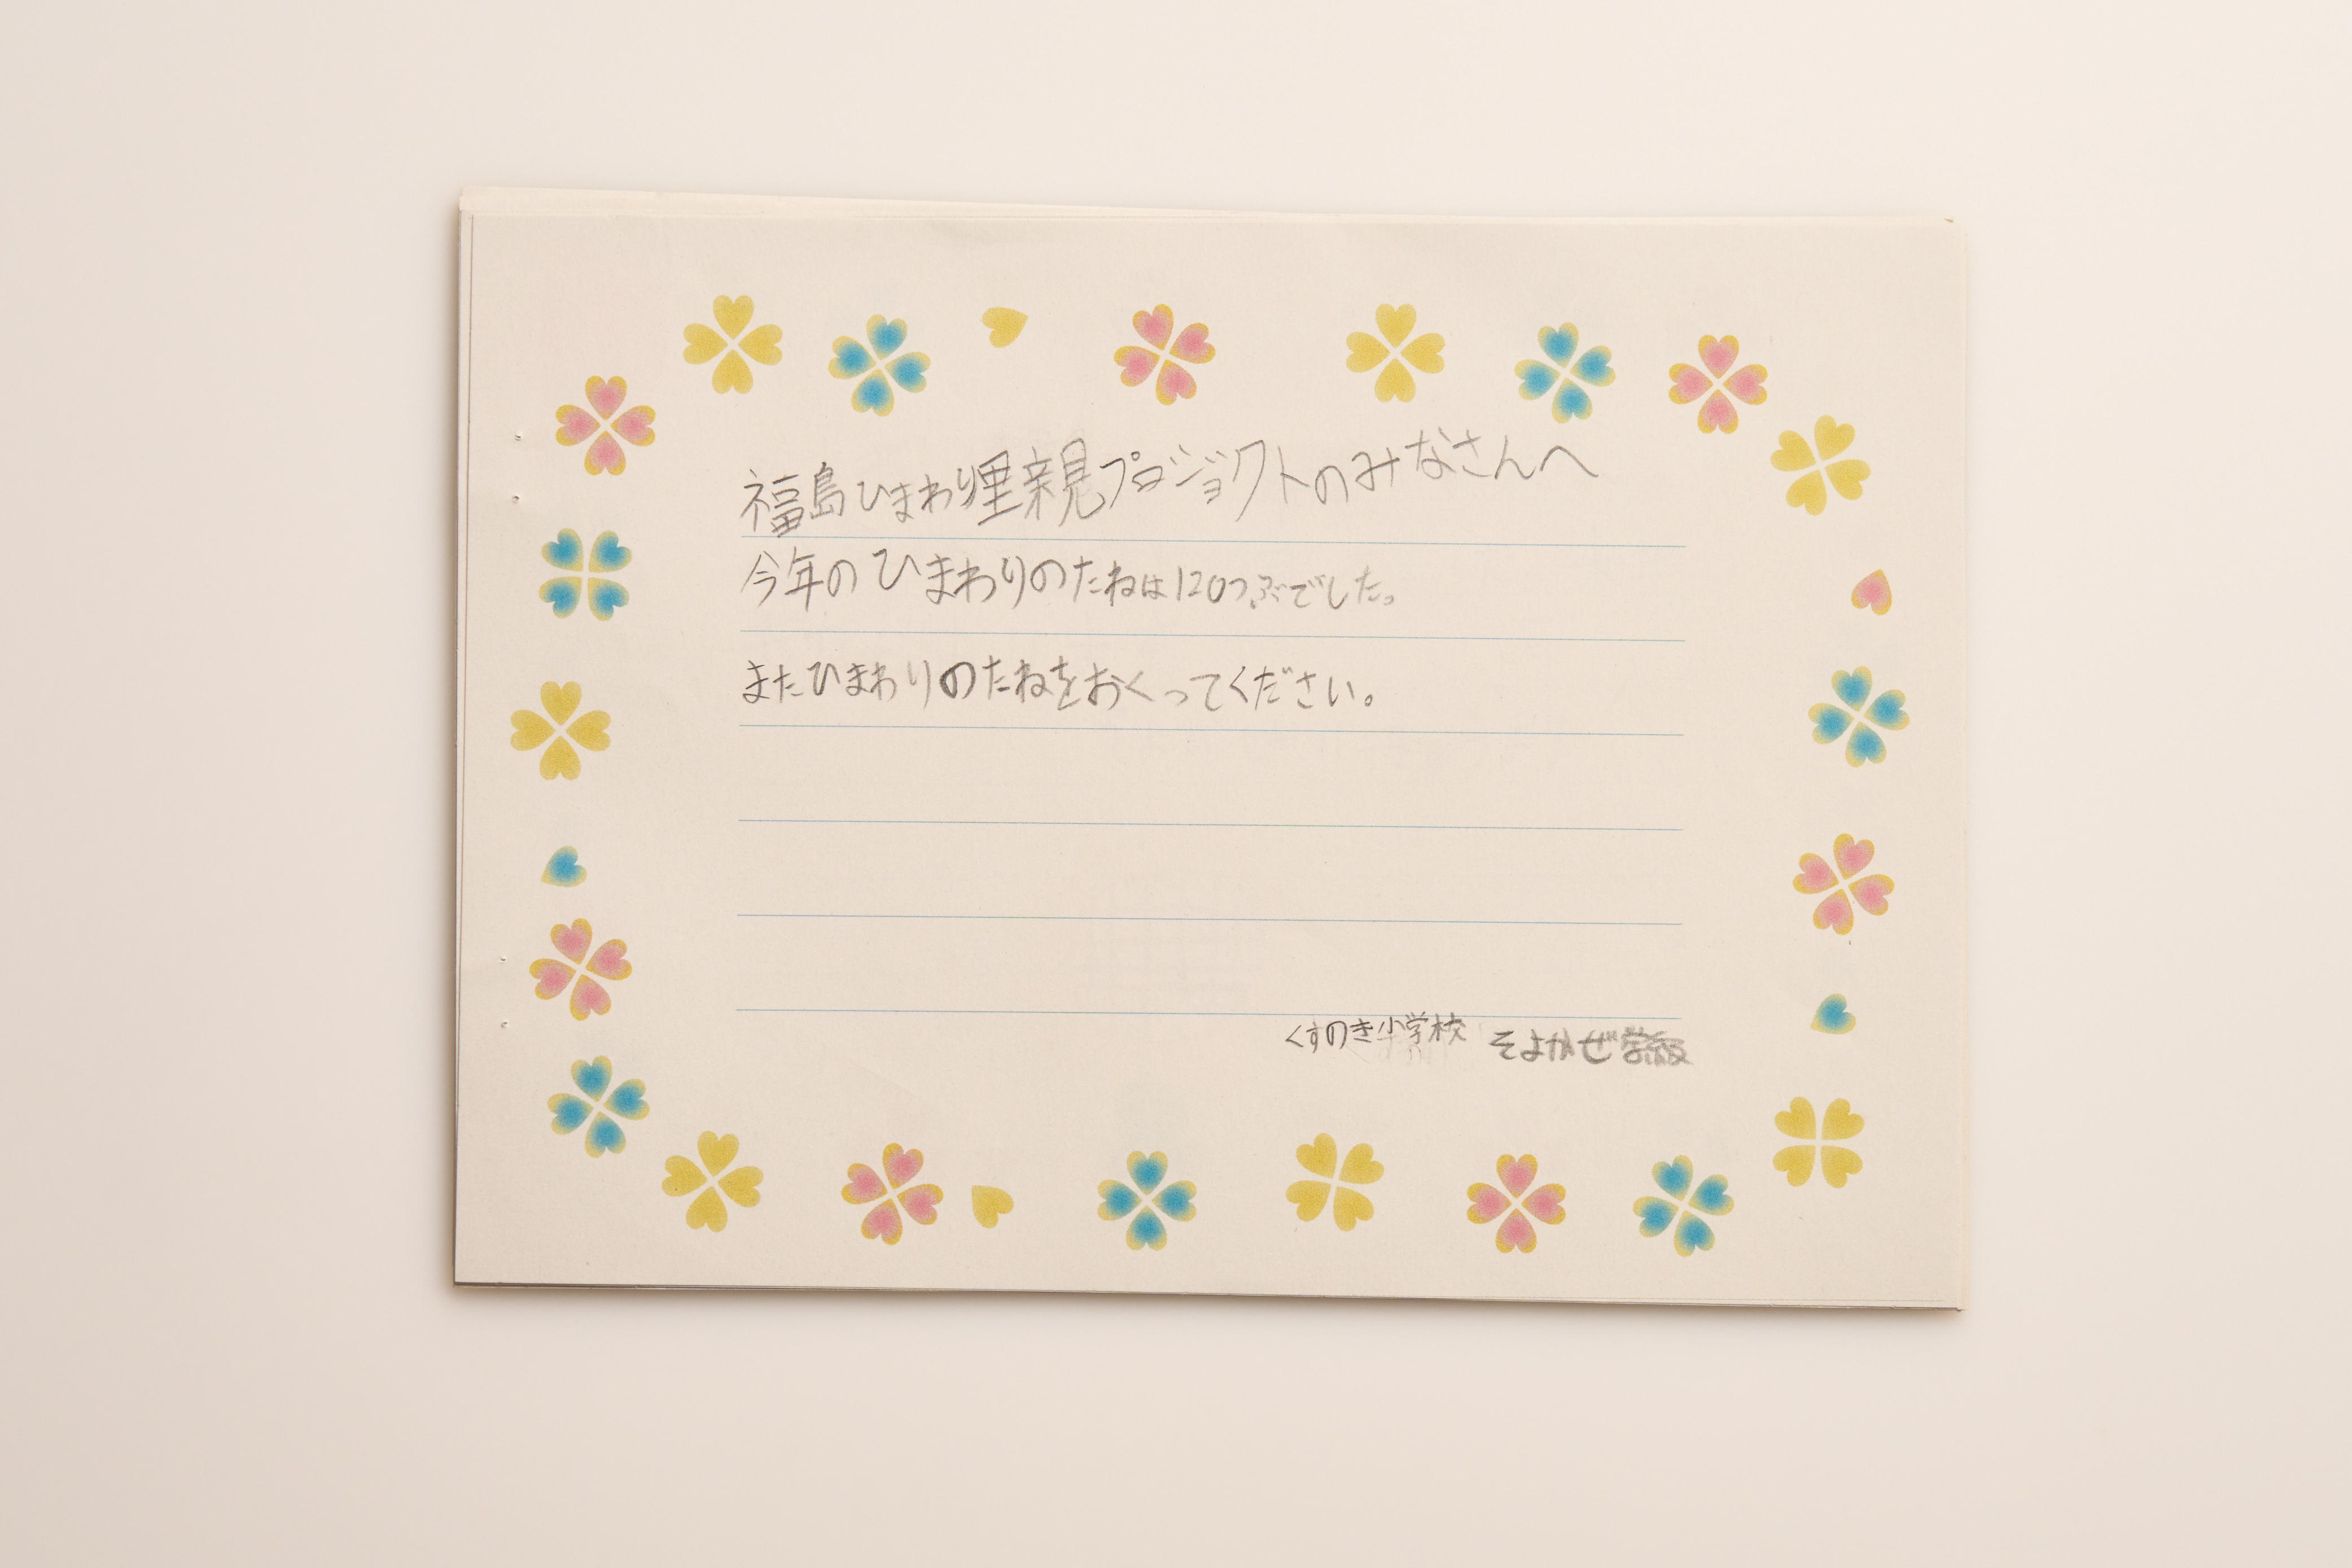 福島ひまわり里親プロジョクトのみなさんへ
今年のひまわりのたねは120つぶでした。
またひまわりのたねをおくってください。
くすのき小学校 そよかぜ学級